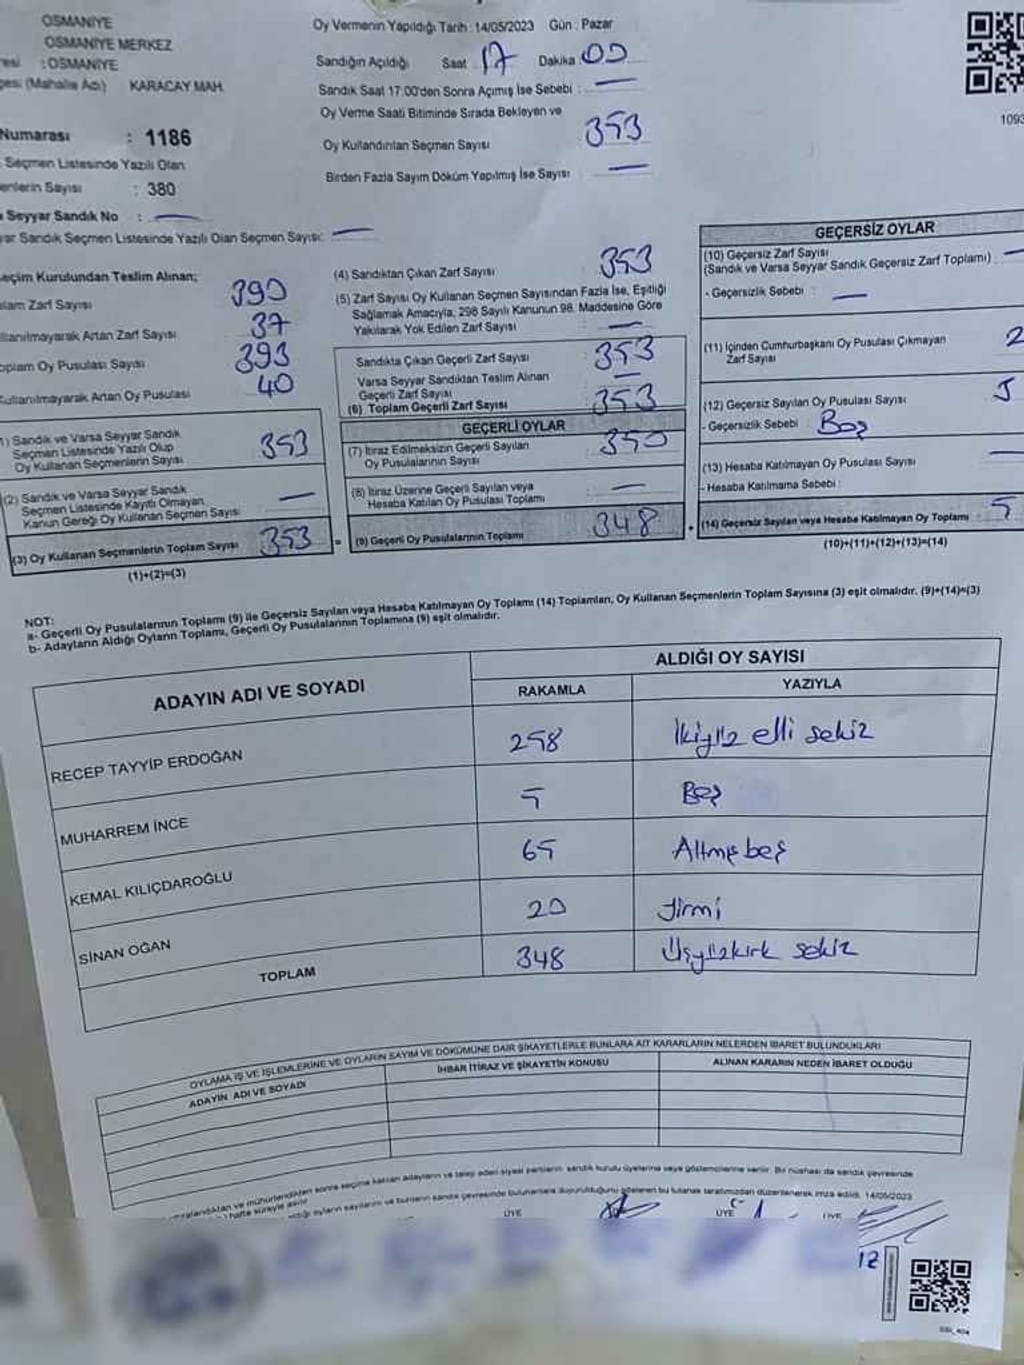 OSMANİYE
OSMANİYE MERKEZ
: OSMANİYE
(Mahalle Adı) KARACAY MAH.
Numarası : 1186
Seçmen Listesinde Yazılı Olan
Sayısı : 380
Seyyar Sandık No : —
Sandık Seçmen Listesinde Yazılı Olan Seçmen Sayısı: —
Oy Vermenin Yapıldığı Tarih : 14/05/2023 Gün : Pazar
Sandığın Açıldığı Saat 17 Dakika 00
Sandık Saat 17.00'den Sonra Açımış İse Sebebi : —
Oy Verme Saati Bitiminde Sırada Bekleyen ve
Oy Kullandırılan Seçmen Sayısı 353
Birden Fazla Sayım Döküm Yapılmış İse Sayısı : —
1093
Seçim Kurulundan Teslim Alınan;
Zarf Sayısı 390
Artan Zarf Sayısı 37
Oy Pusulası Sayısı 393
Kullanılmayarak Artan Oy Pusulası 40
1) Sandık ve Varsa Seyyar Sandık
Seçmen Listesinde Yazılı Olup
Oy Kullanan Seçmenlerin Sayısı 353
(2) Sandık ve Varsa Seyyar Sandık
Seçmen Listesinde Kayıtlı Olmayan
Kanun Gereği Oy Kullanan Seçmen Sayısı —
(3) Oy Kullanan Seçmenlerin Toplam Sayısı 353
(1)+(2)=(3)
(4) Sandıktan Çıkan Zarf Sayısı 353
(5) Zarf Sayısı Oy Kullanan Seçmen Sayısından Fazla İse, Eşitliği
Sağlamak Amacıyla, 298 Sayılı Kanunun 98. Maddesine Göre
Yakılarak Yok Edilen Zarf Sayısı —
Sandıkta Çıkan Geçerli Zarf Sayısı 353
Varsa Seyyar Sandıktan Teslim Alınan
Geçerli Zarf Sayısı —
(6) Toplam Geçerli Zarf Sayısı 353
GEÇERLİ OYLAR
(7) İtiraz Edilmeksizin Geçerli Sayılan
Oy Pusulalarının Sayısı 350
(8) İtiraz Üzerine Geçerli Sayılan veya
Hesaba Katılan Oy Pusulası Toplamı —
= (9) Geçerli Oy Pusulalarının Toplamı 348
GEÇERSİZ OYLAR
(10) Geçersiz Zarf Sayısı
(Sandık ve Varsa Seyyar Sandık Geçersiz Zarf Toplamı) —
- Geçersizlik Sebebi : —
(11) İçinden Cumhurbaşkanı Oy Pusulası Çıkmayan
Zarf Sayısı 2
(12) Geçersiz Sayılan Oy Pusulası Sayısı
- Geçersizlik Sebebi : Boş
(13) Hesaba Katılmayan Oy Pusulası Sayısı —
- Hesaba Katılmama Sebebi :
+ (14) Geçersiz Sayılan veya Hesaba Katılmayan Oy Toplamı 5
(10)+(11)+(12)+(13)=(14)
NOT:
a- Geçerli Oy Pusulalarının Toplamı (9) ile Geçersiz Sayılan veya Hesaba Katılmayan Oy Toplamı (14) Toplamları, Oy Kullanan Seçmenlerin Toplam Sayısına (3) eşit olmalıdır. (9)+(14)=(3)
b- Adayların Aldığı Oyların Toplamı, Geçerli Oy Pusulalarının Toplamına (9) eşit olmalıdır.
ADAYIN ADI VE SOYADI ALDIĞI OY SAYISI
RAKAMLA YAZIYLA
RECEP TAYYİP ERDOĞAN 258 İkiyüz elli sekiz
MUHARREM İNCE 5 Beş
KEMAL KILIÇDAROĞLU 65 Altmış beş
SİNAN OĞAN 20 Yirmi
TOPLAM 348 Üçyüzkırk sekiz
OYLAMA İŞ VE İŞLEMLERİNE VE OYLARIN SAYIM VE DÖKÜMÜNE DAİR ŞİKAYETLERLE BUNLARA AİT KARARLARIN NELERDEN İBARET BULUNDUKLARI
ADAYIN ADI VE SOYADI İHBAR İTİRAZ VE ŞİKAYETİN KONUSU ALINAN KARARIN NEDEN İBARET OLDUĞU
ve mühürlendikten sonra seçime katılan adayların ve talep eden siyasi partilerin sandık kurulu üyelerine veya gözlemcilerine verilir. Bir nüshası da sandık çevresinde
hafta süreyle asılır.
oyların sayılarını ve bunların sandık çevresinde bulunanlara duyurulduğunu gösteren bu tutanak tarafımızdan düzenlenerek imza edildi. 14/05/2023
ÜYE ÜYE ÜYE
12